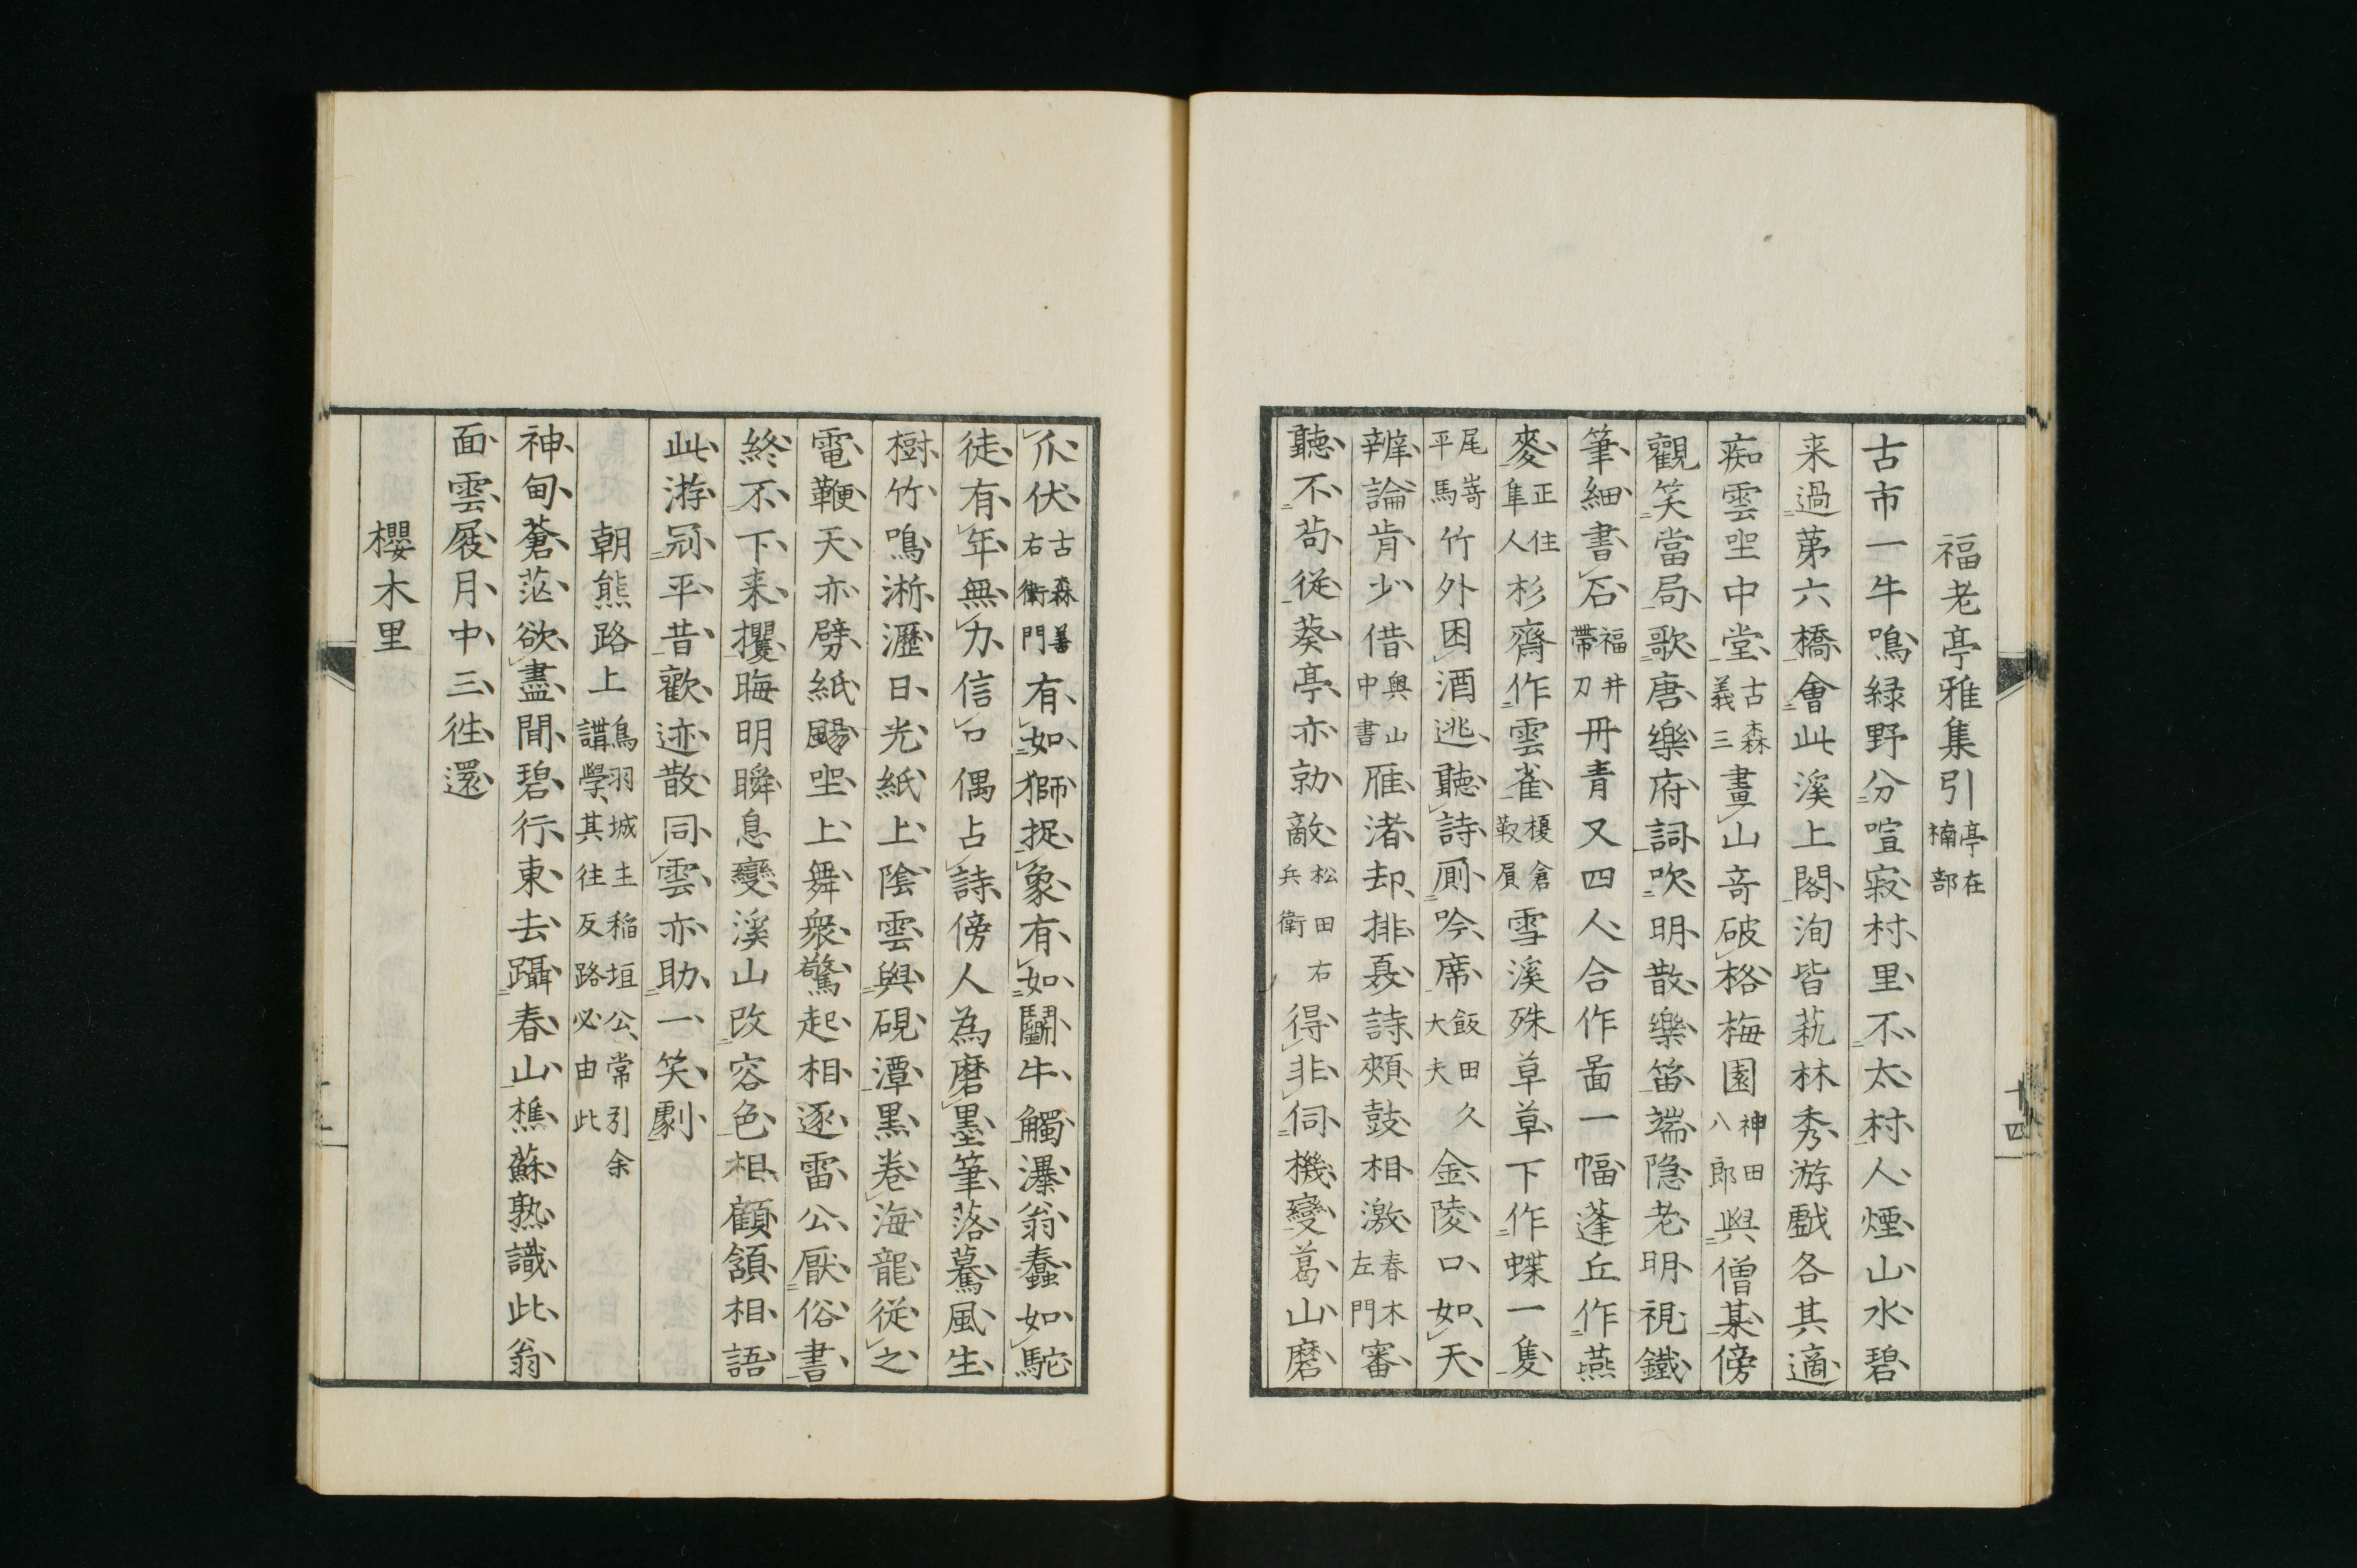 福老亭雅集引亭在楠部
古市一牛鳴緑野分喧寂村里不太村人煙山水碧
来過第六橋會此溪上閣洵皆萟林秀游戲各其適
痴雲坐中堂古森義三畫山竒破格梅園神田八郎與僧某傍
觀笑當局歌唐樂府詞吹明散樂笛端隐老明視鐵
筆細書石福井帶刀冊青又四人合作啚一幅蓬丘作燕
麥正住隼人杉齋作雲雀榎倉靫負雪溪殊草草下作蝶一隻
尾嵜平馬竹外困酒逃聽詩厠吟席飯田久大夫金陵口如天
辨論肯少借奥山中書雁渚却排戛詩頰鼓相激春木左門審
聽不茍從葵亭亦勍敵松田右兵衛得非伺機變葛山磨
爪伏古森善右衛門有如獅捉象有如鬭牛觸瀑翁蠢如駝
徒有年無力信口偶占詩傍人為磨墨筆落驀風生
樹竹鳴淅瀝日光紙上陰雲與硯潭黒卷海龍從之
電鞭天亦劈紙颺坐上舞衆驚起相逐雷公厭俗書
終不下来攫晦明瞬息變溪山改容色相顧頷相語
此游冠平昔歡迹散同雲亦助一笑劇
朝熊路上鳥羽城主稲垣公常引余講學其往反路必由此
神甸蒼茫欲盡間碧行東去躡春山樵蘇熟識此翁
面雲屐月中三徃還
櫻木里
十四